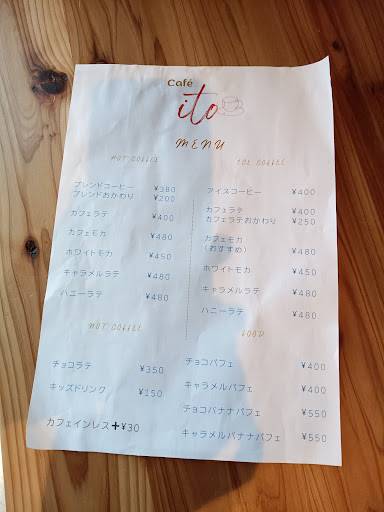 Café
ito
MENU
HOT COFFEE
ブレンドコーヒー ¥380
ブレンドおかわり ¥200
カフェラテ ¥400
カフェモカ ¥480
ホワイトモカ ¥450
キャラメルラテ ¥480
ハニーラテ ¥480
ICE COFFEE
アイスコーヒー ¥400
カフェラテ ¥400
カフェラテおかわり ¥250
カフェモカ
(おすすめ) ¥480
ホワイトモカ ¥450
キャラメルラテ ¥480
ハニーラテ ¥480
HOT COFFEE
チョコラテ ¥350
キッズドリンク ¥150
カフェインレス+¥30
FOOD
チョコパフェ ¥400
キャラメルパフェ ¥400
チョコバナナパフェ ¥550
キャラメルバナナパフェ ¥550